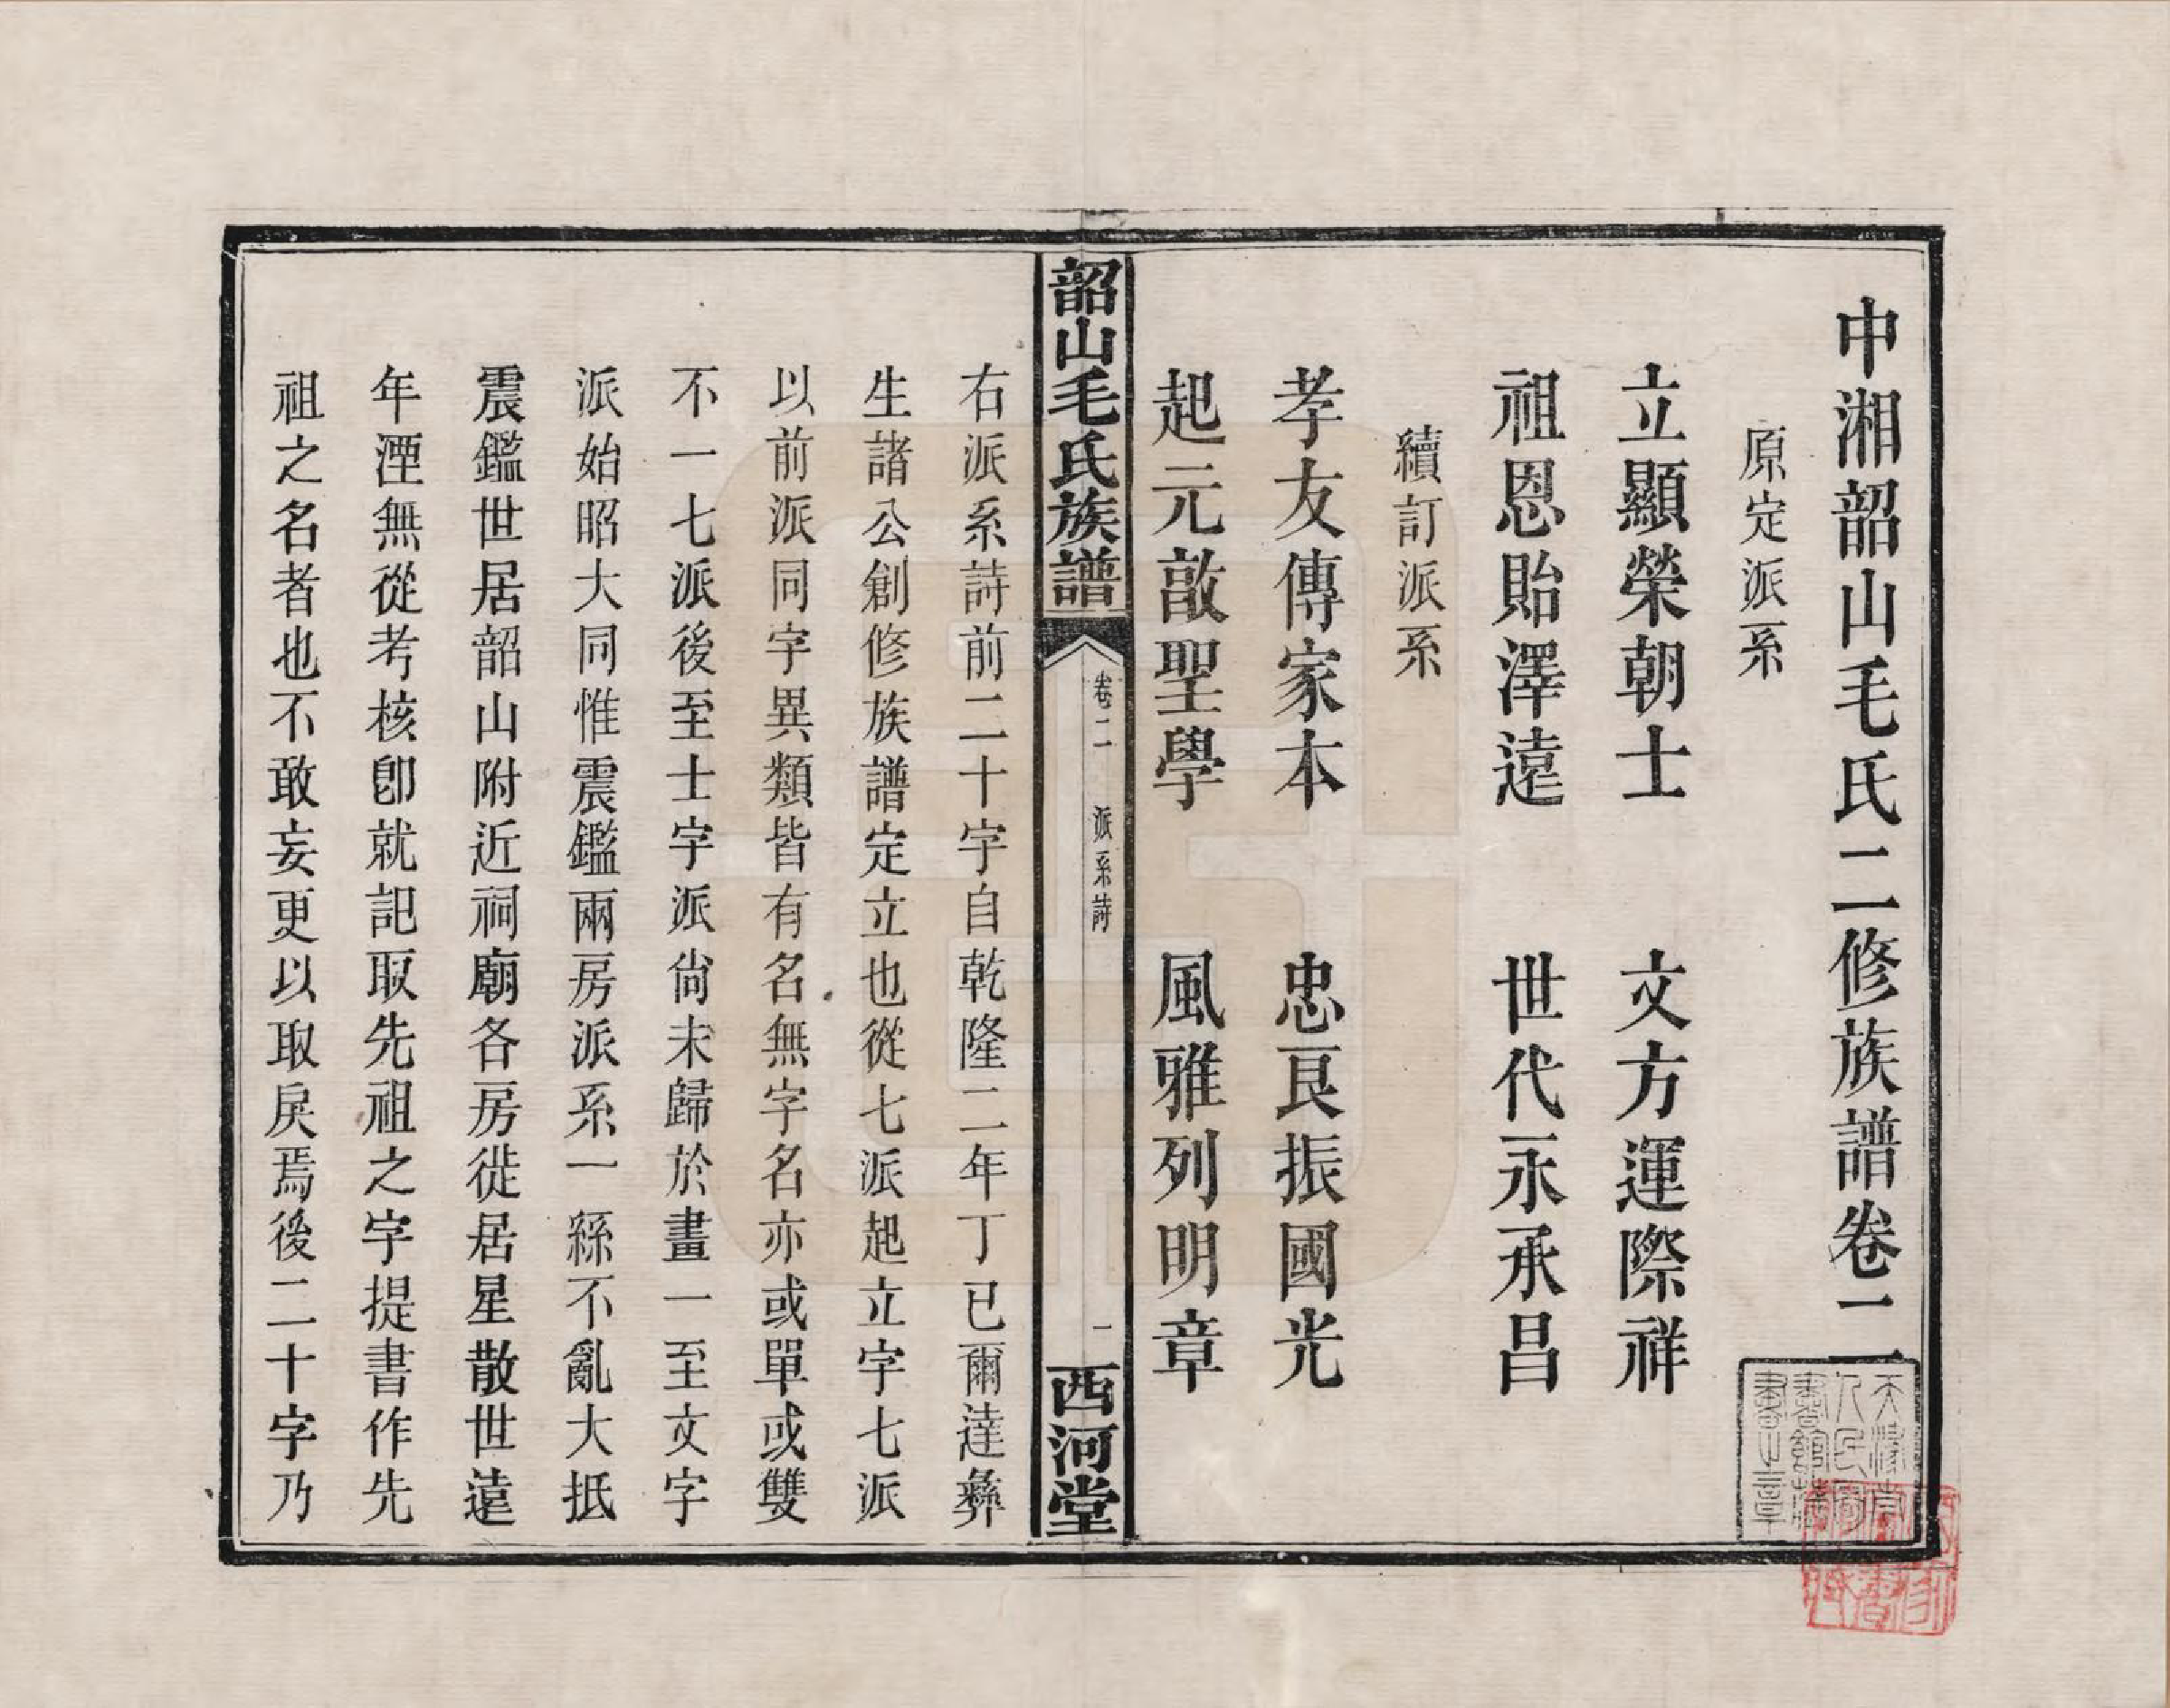 中湘韶山毛氏二修族譜卷二
原定派系
立顯榮朝士　文方運際祥
祖恩貽澤遠　世代永承昌
續訂派系
孝友傳家本　忠良振國光
起元敦聖學　風雅列明章
韶山毛氏族譜　卷二　派系詩　一　西河堂
右派系詩前二十字自乾隆二年丁巳爾達彝
生諸公創修族譜定立也從七派起立字七派
以前派同字異類皆有名無字名亦或單或雙
不一七派後至士字派尙未歸於畫一至文字
派始昭大同惟震鑑兩房派系一緜不亂大抵
震鑑世居韶山附近祠廟各房徙居星散世遠
年湮無從考核卽就記取先祖之字提書作先
祖之名者也不敢妄更以取戾焉後二十字乃